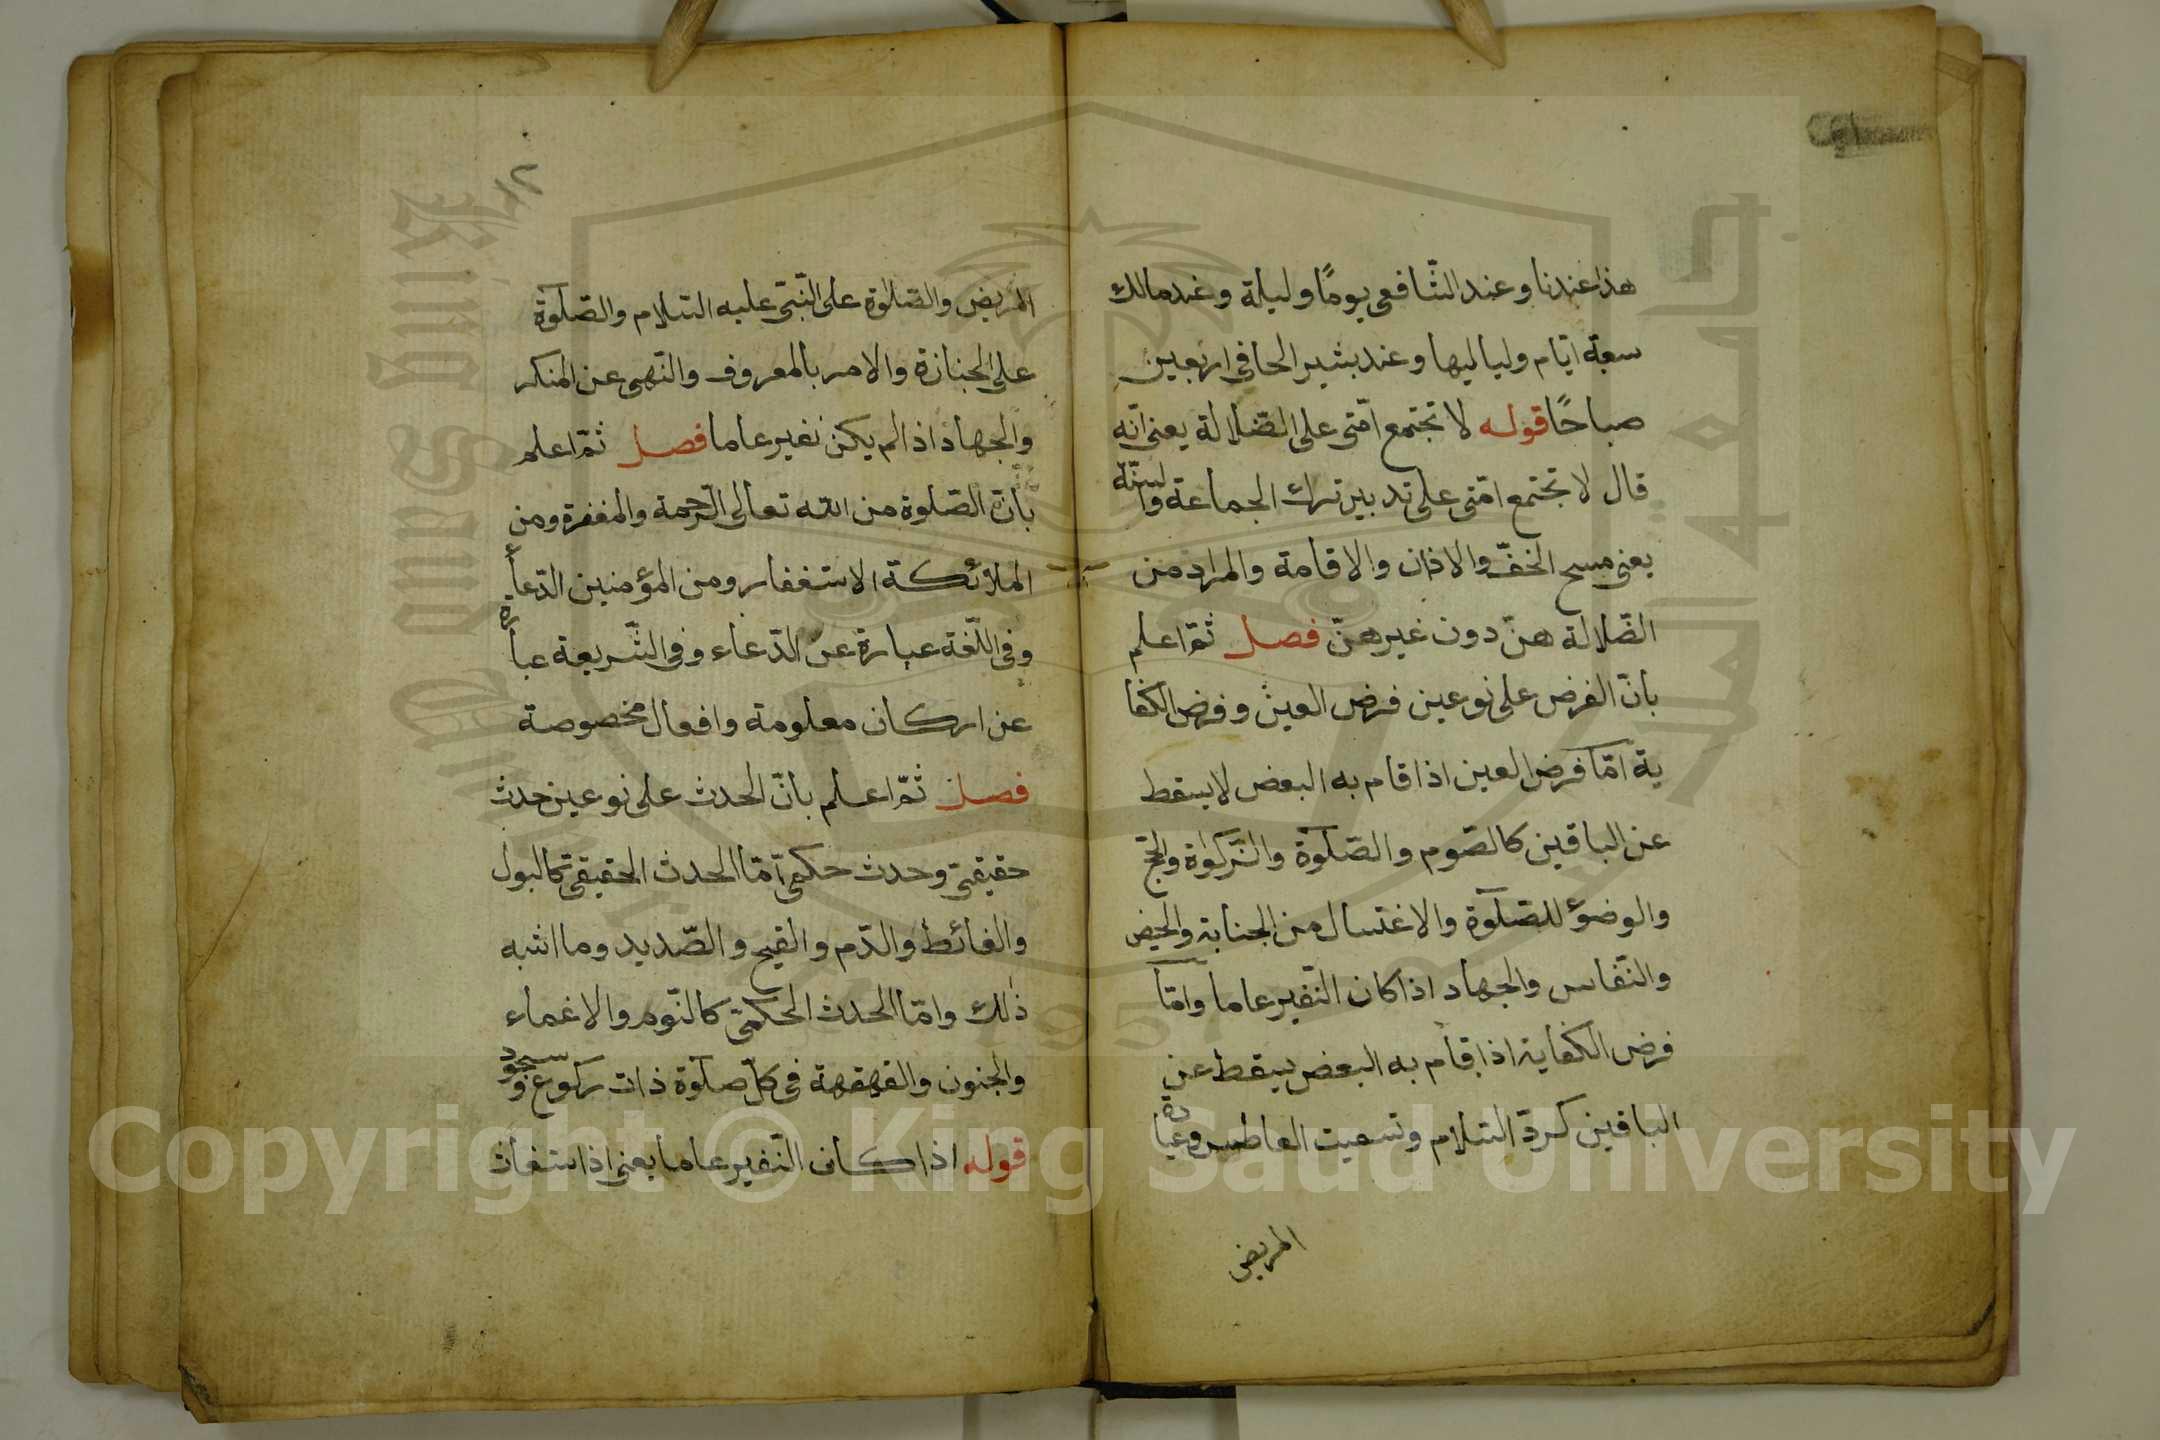 هذا عندنا وعند الشّافعى يومًا وليلة وعند مالك
سبعة ايّام ولياليها وعند بشير الحافى اربعين
صباحًا قوله لا تجتمع امّتى على الضّلالة يعنى انّه
قال لا تجتمع امّتى على تدبير ترك الجماعة والسنّة
يعنى مسح الخفّ والاذان والاقامة والمراد من
الضّلالة هنّ دون غيرهنّ فصل ثمّ اعلم
بانّ الفرض على نوعين فرض العين وفرض الكفا
ية امّا فرض العين اذا قام به البعض لا يسقط
عن الباقين كالصّوم والصّلوة والزّكوة والحجّ
والوضوء للصّلوة والاغتسال من الجنابة والحيض
والنّفاس والجهاد اذا كان النّفير عاما وامّا
فرض الكفاية اذا قام به البعض يسقط عن
الباقين كردّ السّلام وتسميت العاطس وعيادة
المريض
١٢
المريض والصّلوة على النّبىّ عليه السّلام والصّلوة
على الجنازة والامر بالمعروف والنّهى عن المنكر
والجهاد اذا لم يكن نفير عاما فصل ثمّ اعلم
بانّ الصّلوة من الله تعالى الرّحمة والمغفرة ومن
الملائكة الاستغفار ومن المؤمنين الدّعاء
وفى اللّغة عبارة عن الدّعاء وفى الشّريعة عبارة
عن اركان معلومة وافعال مخصوصة
فصل ثمّ اعلم بانّ الحدث على نوعين حدث
حقيقىّ وحدث حكمىّ امّا الحدث الحقيقىّ كالبول
والغائط والدّم والقيح والصّديد وما اشبه
ذلك وامّا الحدث الحكمىّ كالنّوم والاغماء
والجنون والقهقهة فى كلّ صلوة ذات ركوع وسجود
قوله اذا كان النّفير عاما يعنى اذا استغاث
King Saud University
جامعة الملك سعود
1957
Copyright © King Saud University